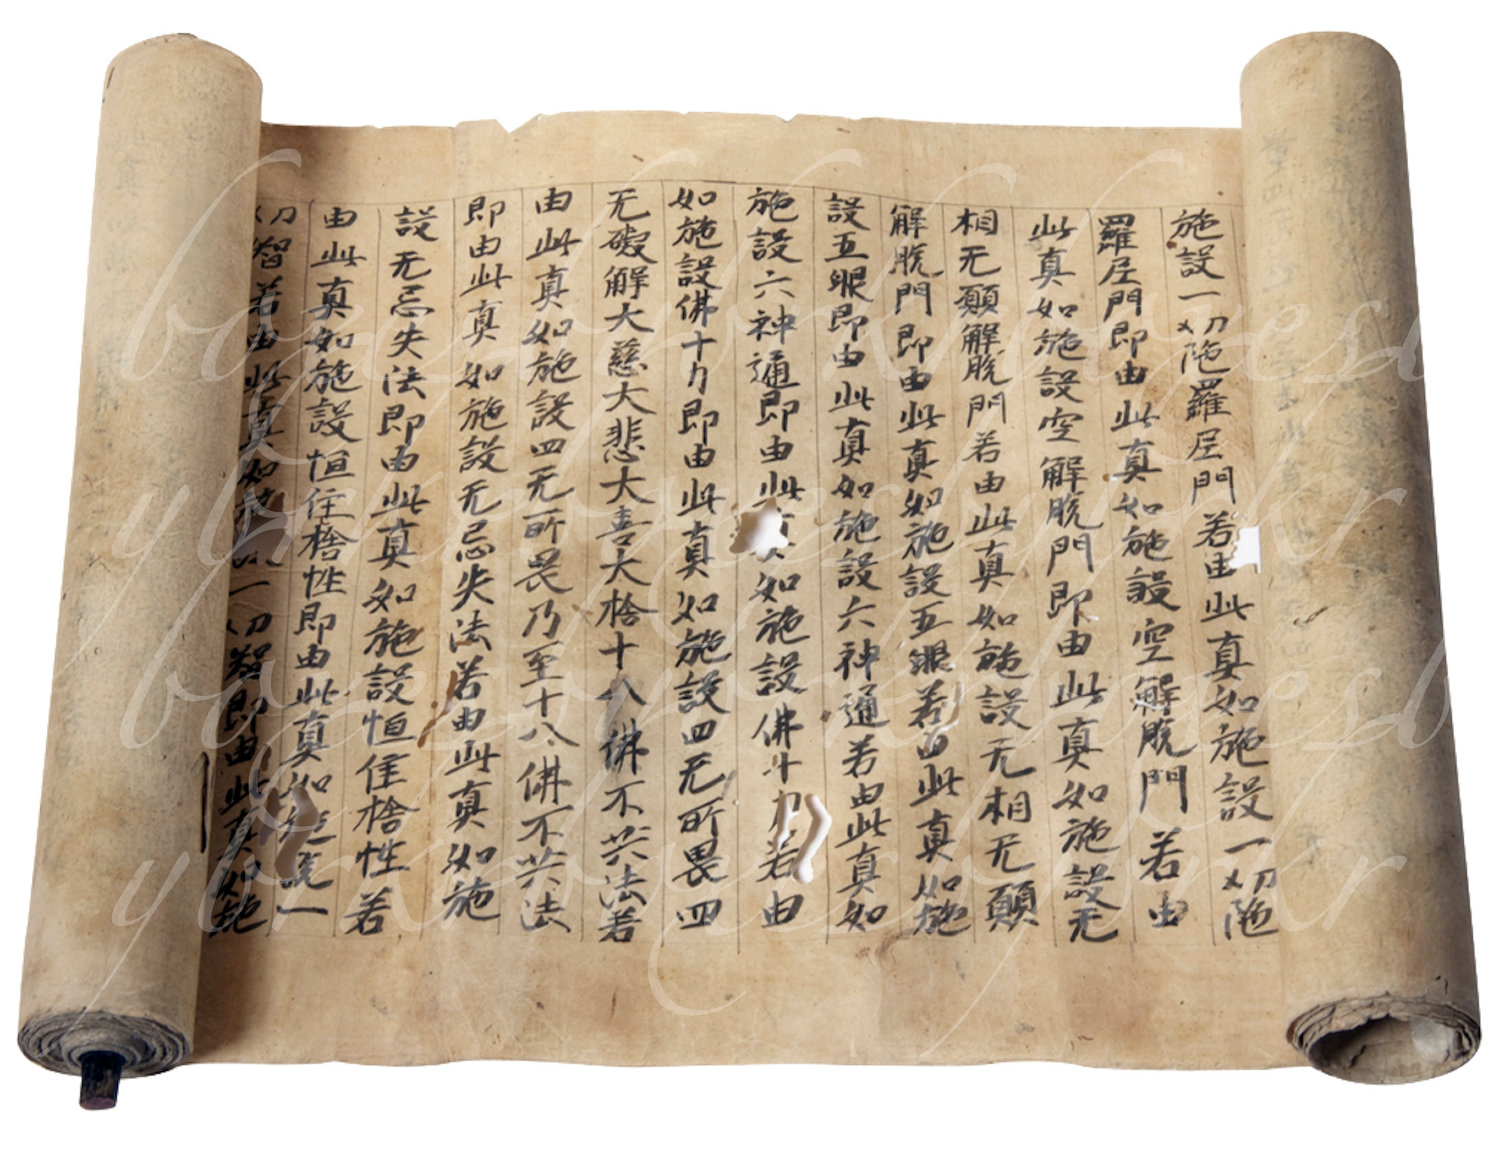 施設一切陁羅尼門若由此真如施設一切陁
羅尼門即由此真如施設空解脫門若由
此真如施設空解脫門即由此真如施設无
相无願解脫門若由此真如施設无相无願
解脫門即由此真如施設五眼若由此真如施
設五眼即由此真如施設六神通若由此真如
施設六神通即由此如施設佛十力若由
如施設佛十力即由此真如施設四无所畏四
无礙解大慈大悲大喜大捨十八佛不共法若
由此真如施設四无所畏乃至十八佛不共法
即由此真如施設无忘失法若由此真如施
設无忘失法即由此真如施設恒住捨性若
由此真如施設恒住捨性即由此真如一
切智若由此真如施一切智即由此真如施